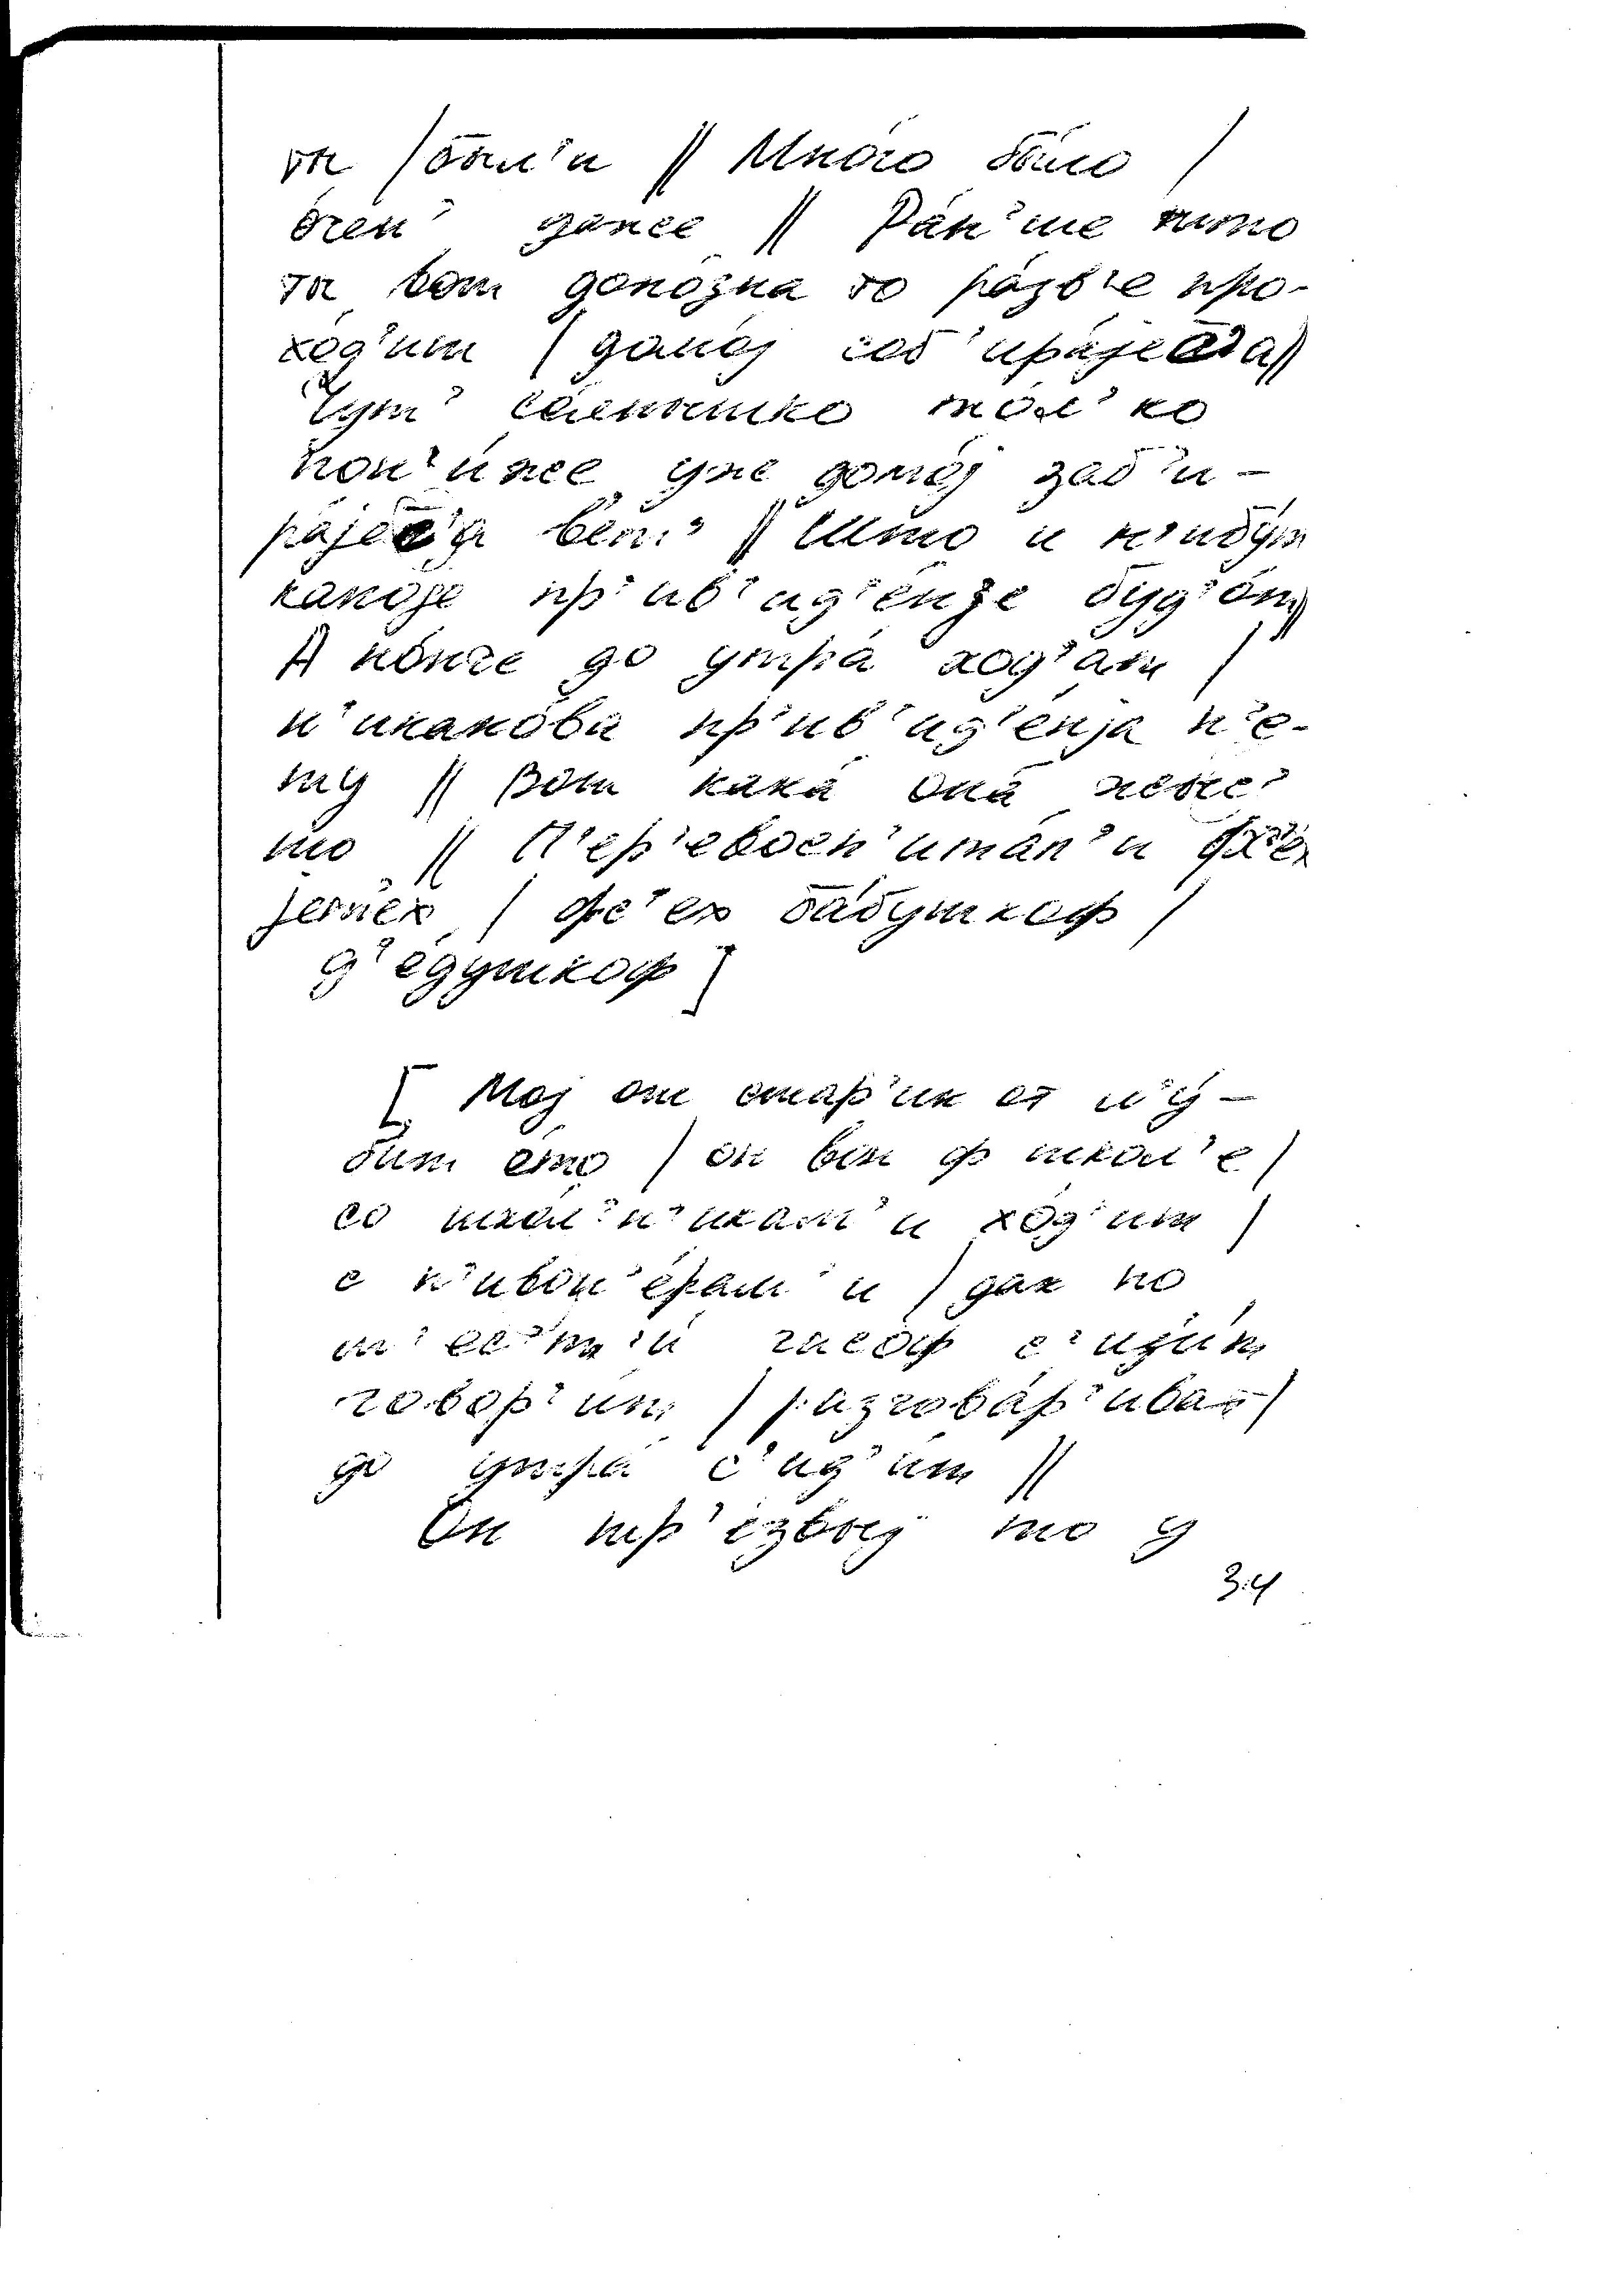 та / был'и // Мно́го бы́ло /
о́чен' даже // Ра́н'ше што
та вот допо́зна то ра́зв'е про-
хо́д'ит / домо́j соб'ира́jе а //
Чут' со́лнышко то́л'ко
пон'и́же уже домо́j заб'и-
ра́jе а вет' // Што н'ибу́т
какоjе пр'ив'ид'е́нjе буд'о́т //
А но́нче до утра́ ход'а́т /
н'икако́ва пр'ив'ид'е́нjа н'е-
ту // Вот кака́ она́
то // П'ер'евосп'ита́л'и
/ фс'ех ба́бушкоф /
д'е́душкоф ]
[ Моj от стар'ик ет л'у́-
бит е́то / он вон ф школ'е /
со шко́л'н'икам'и хо́д'ит /
с п'ивон'е́рам'и / дак по
ш'ес'т'и́ часоф с'ид'и́т
говор'и́т / разгова́р'иват /
до утра́ с'ид'и́т //
Он тр'е́звыj то у
34